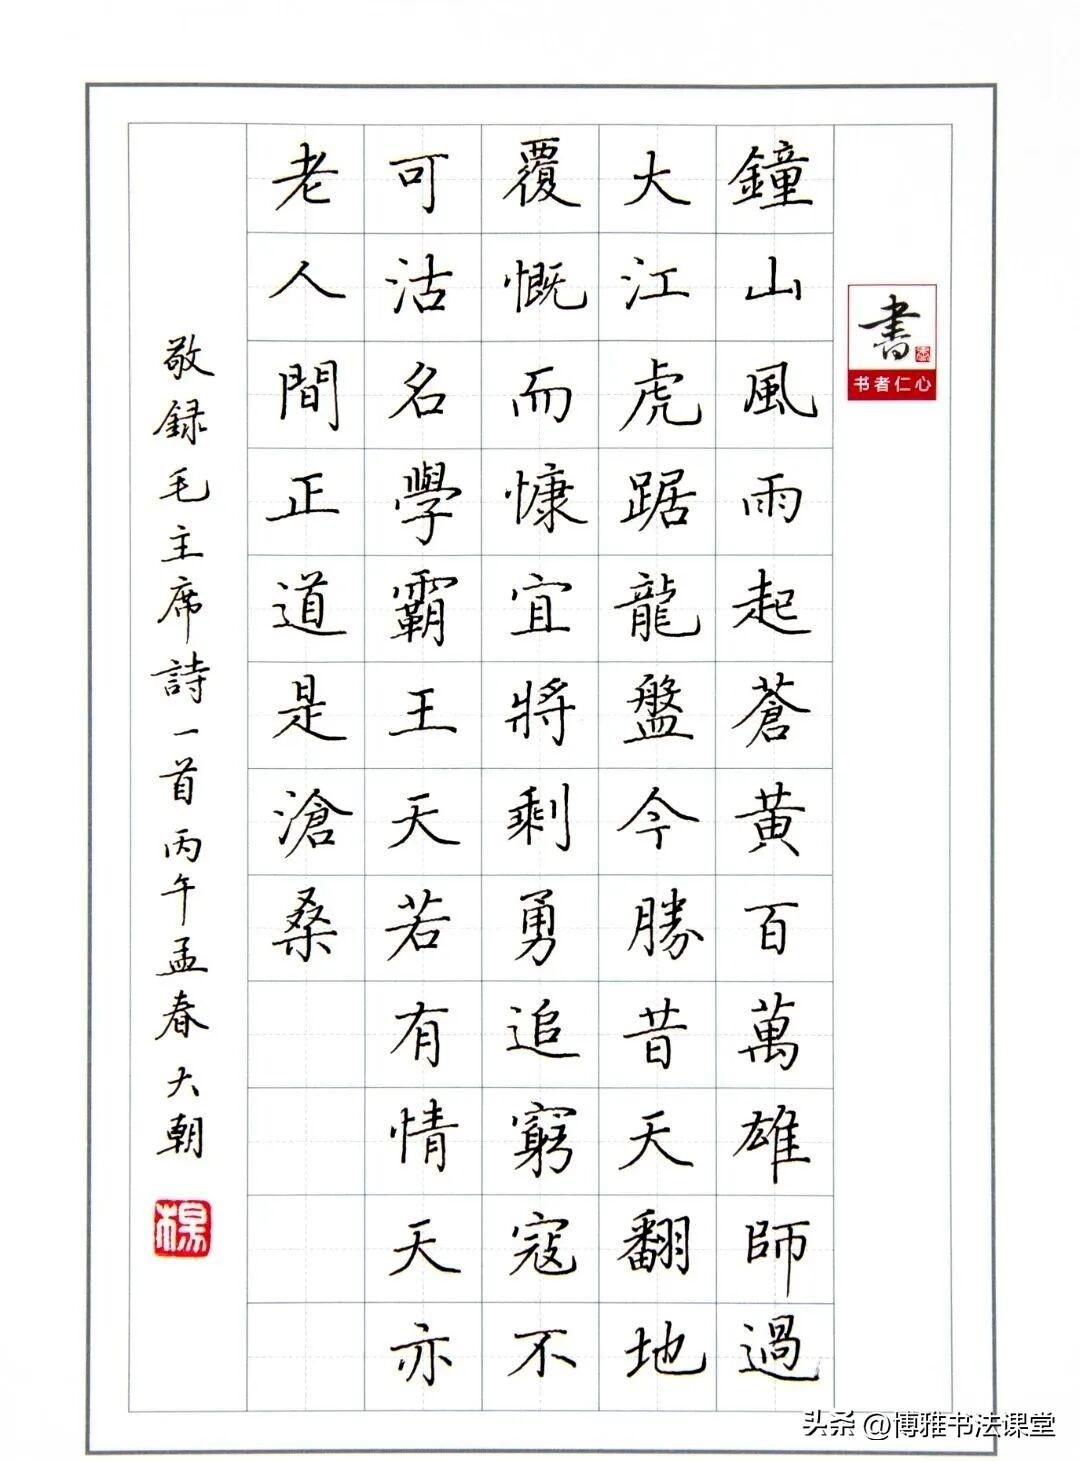 鐘山風雨起蒼黃百萬雄師過
大江虎踞龍盤今勝昔天翻地
覆慨而慷宜將剩勇追窮寇不
可沽名學霸王天若有情天亦
老人間正道是滄桑
敬録毛主席詩一首丙午孟春大朝
書
书者仁心
头条 @博雅书法课堂